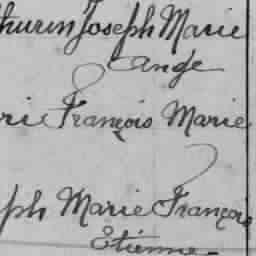 thurin Joseph Marie
Ange
rie François Marie
ph Marie François
Etienne